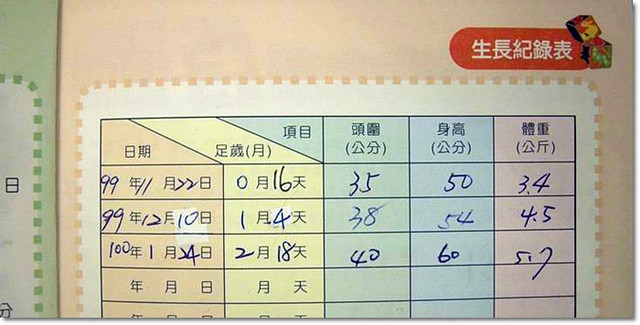 生長紀錄表
日期 足歲(月) 項目 頭圍(公分) 身高(公分) 體重(公斤)
日 99年11月22日 0月16天 35 50 3.4
99年12月10日 1月4天 38 54 4.5
100年1月24日 2月18天 40 60 5.7
年 月 日 月 天
分 年 月 日 月 天